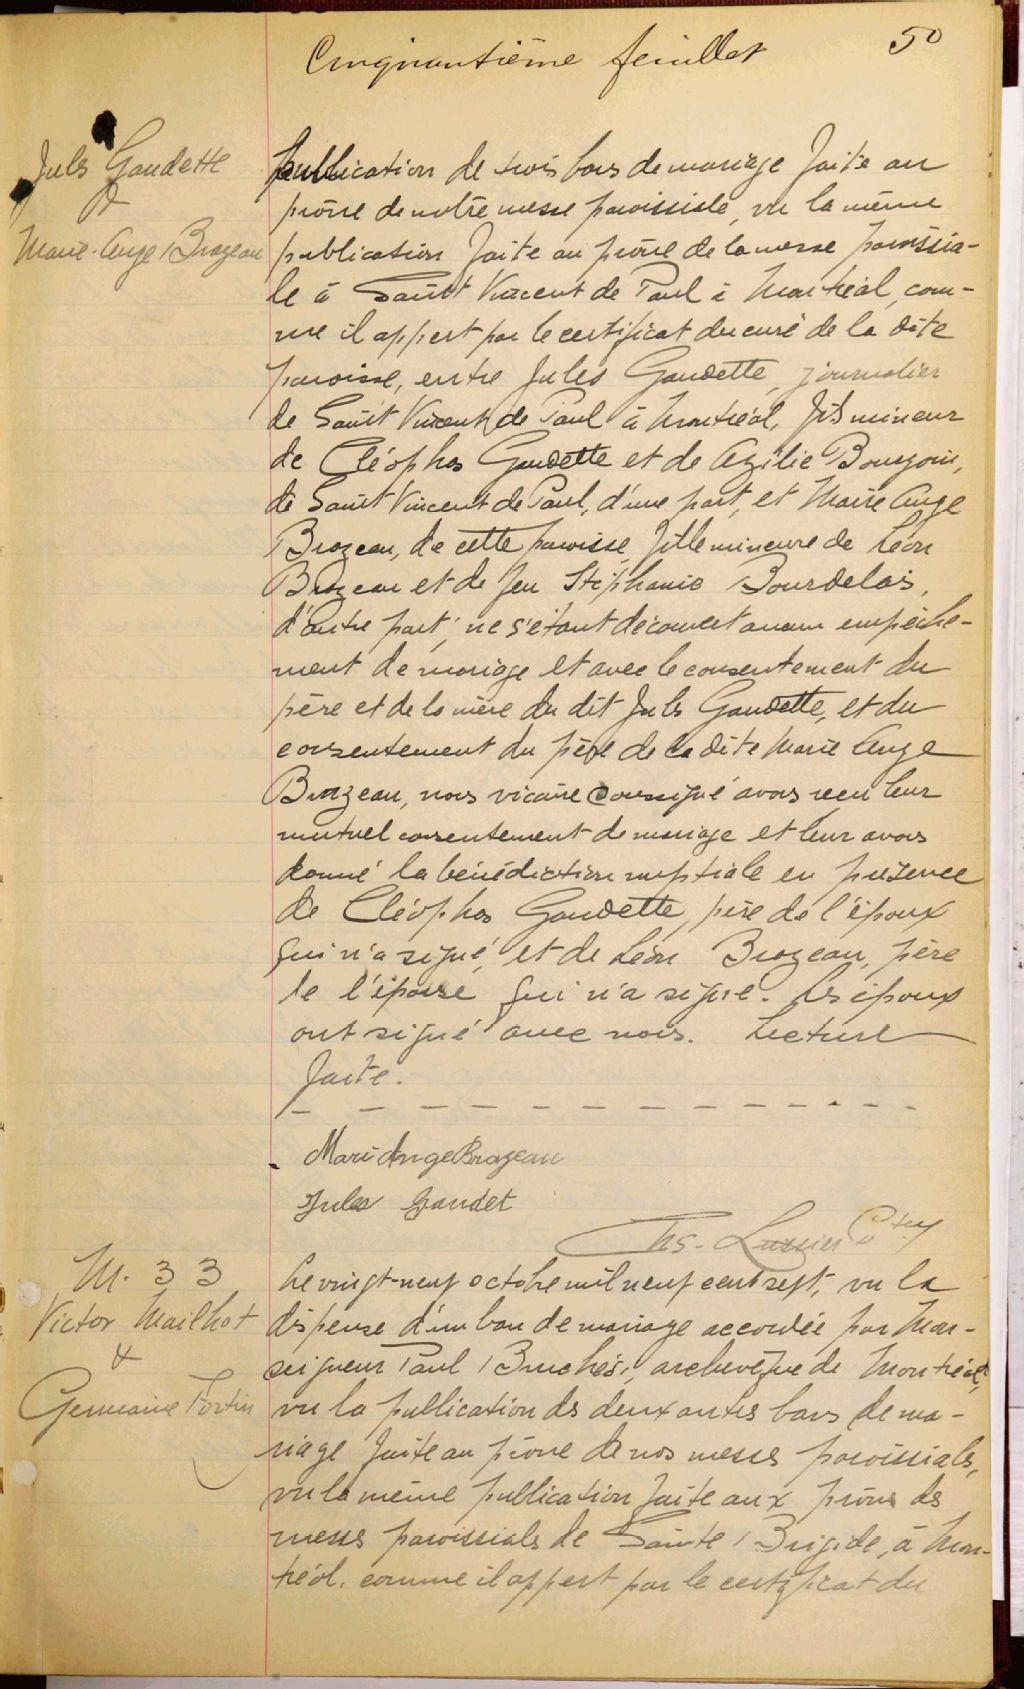 Cinquantième feuillet
50
Jules Gaudette
&
Marie-Ange Brazeau
publication de trois bans de mariage faite au
prône de notre messe paroissiale, vu la même
publication faite au prône de la messe paroissia-
le à Saint Vincent de Paul à Montréal, com-
me il appert par le certificat du curé de la dite
paroisse, entre Jules Gaudette, journalier
de Saint Vincent de Paul à Montréal, fils mineur
de Cléophas Gaudette et de Azilie Bourgoin,
de Saint Vincent de Paul, d'une part, et Marie Ange
Brazeau, de cette paroisse, fille mineure de Léon
Brazeau et de feu Stéphanie Bourdelais,
d'autre part; ne s'étant découvert aucun empêche-
ment de mariage et avec le consentement du
père et de la mère du dit Jules Gaudette, et du
consentement du père de la dite Marie Ange
Brazeau, nous vicaire soussigné avons reçu leur
mutuel consentement de mariage et leur avons
donné la bénédiction nuptiale en présence
de Cléophas Gaudette, père de l'époux
qui n'a signé, et de Léon Brazeau, père
de l'épouse qui n'a signé. Les époux
ont signé avec nous. Lecture
faite.
Marie Ange Brazeau
Jules Gaudet
Chs. Lussier Ptre
M. 33
Victor Mailhot
&
Germaine Fortin
Le vingt-neuf octobre mil neuf cent sept, vu la
dispense d'un ban de mariage accordée par Mon-
seigneur Paul Bruchési, archevêque de Montréal,
vu la publication des deux autres bans de ma-
riage faite au prône de nos messes paroissiales,
vu la même publication faite aux prônes des
messes paroissiales de Sainte Brigide, à Mon-
tréal, comme il appert par le certificat du